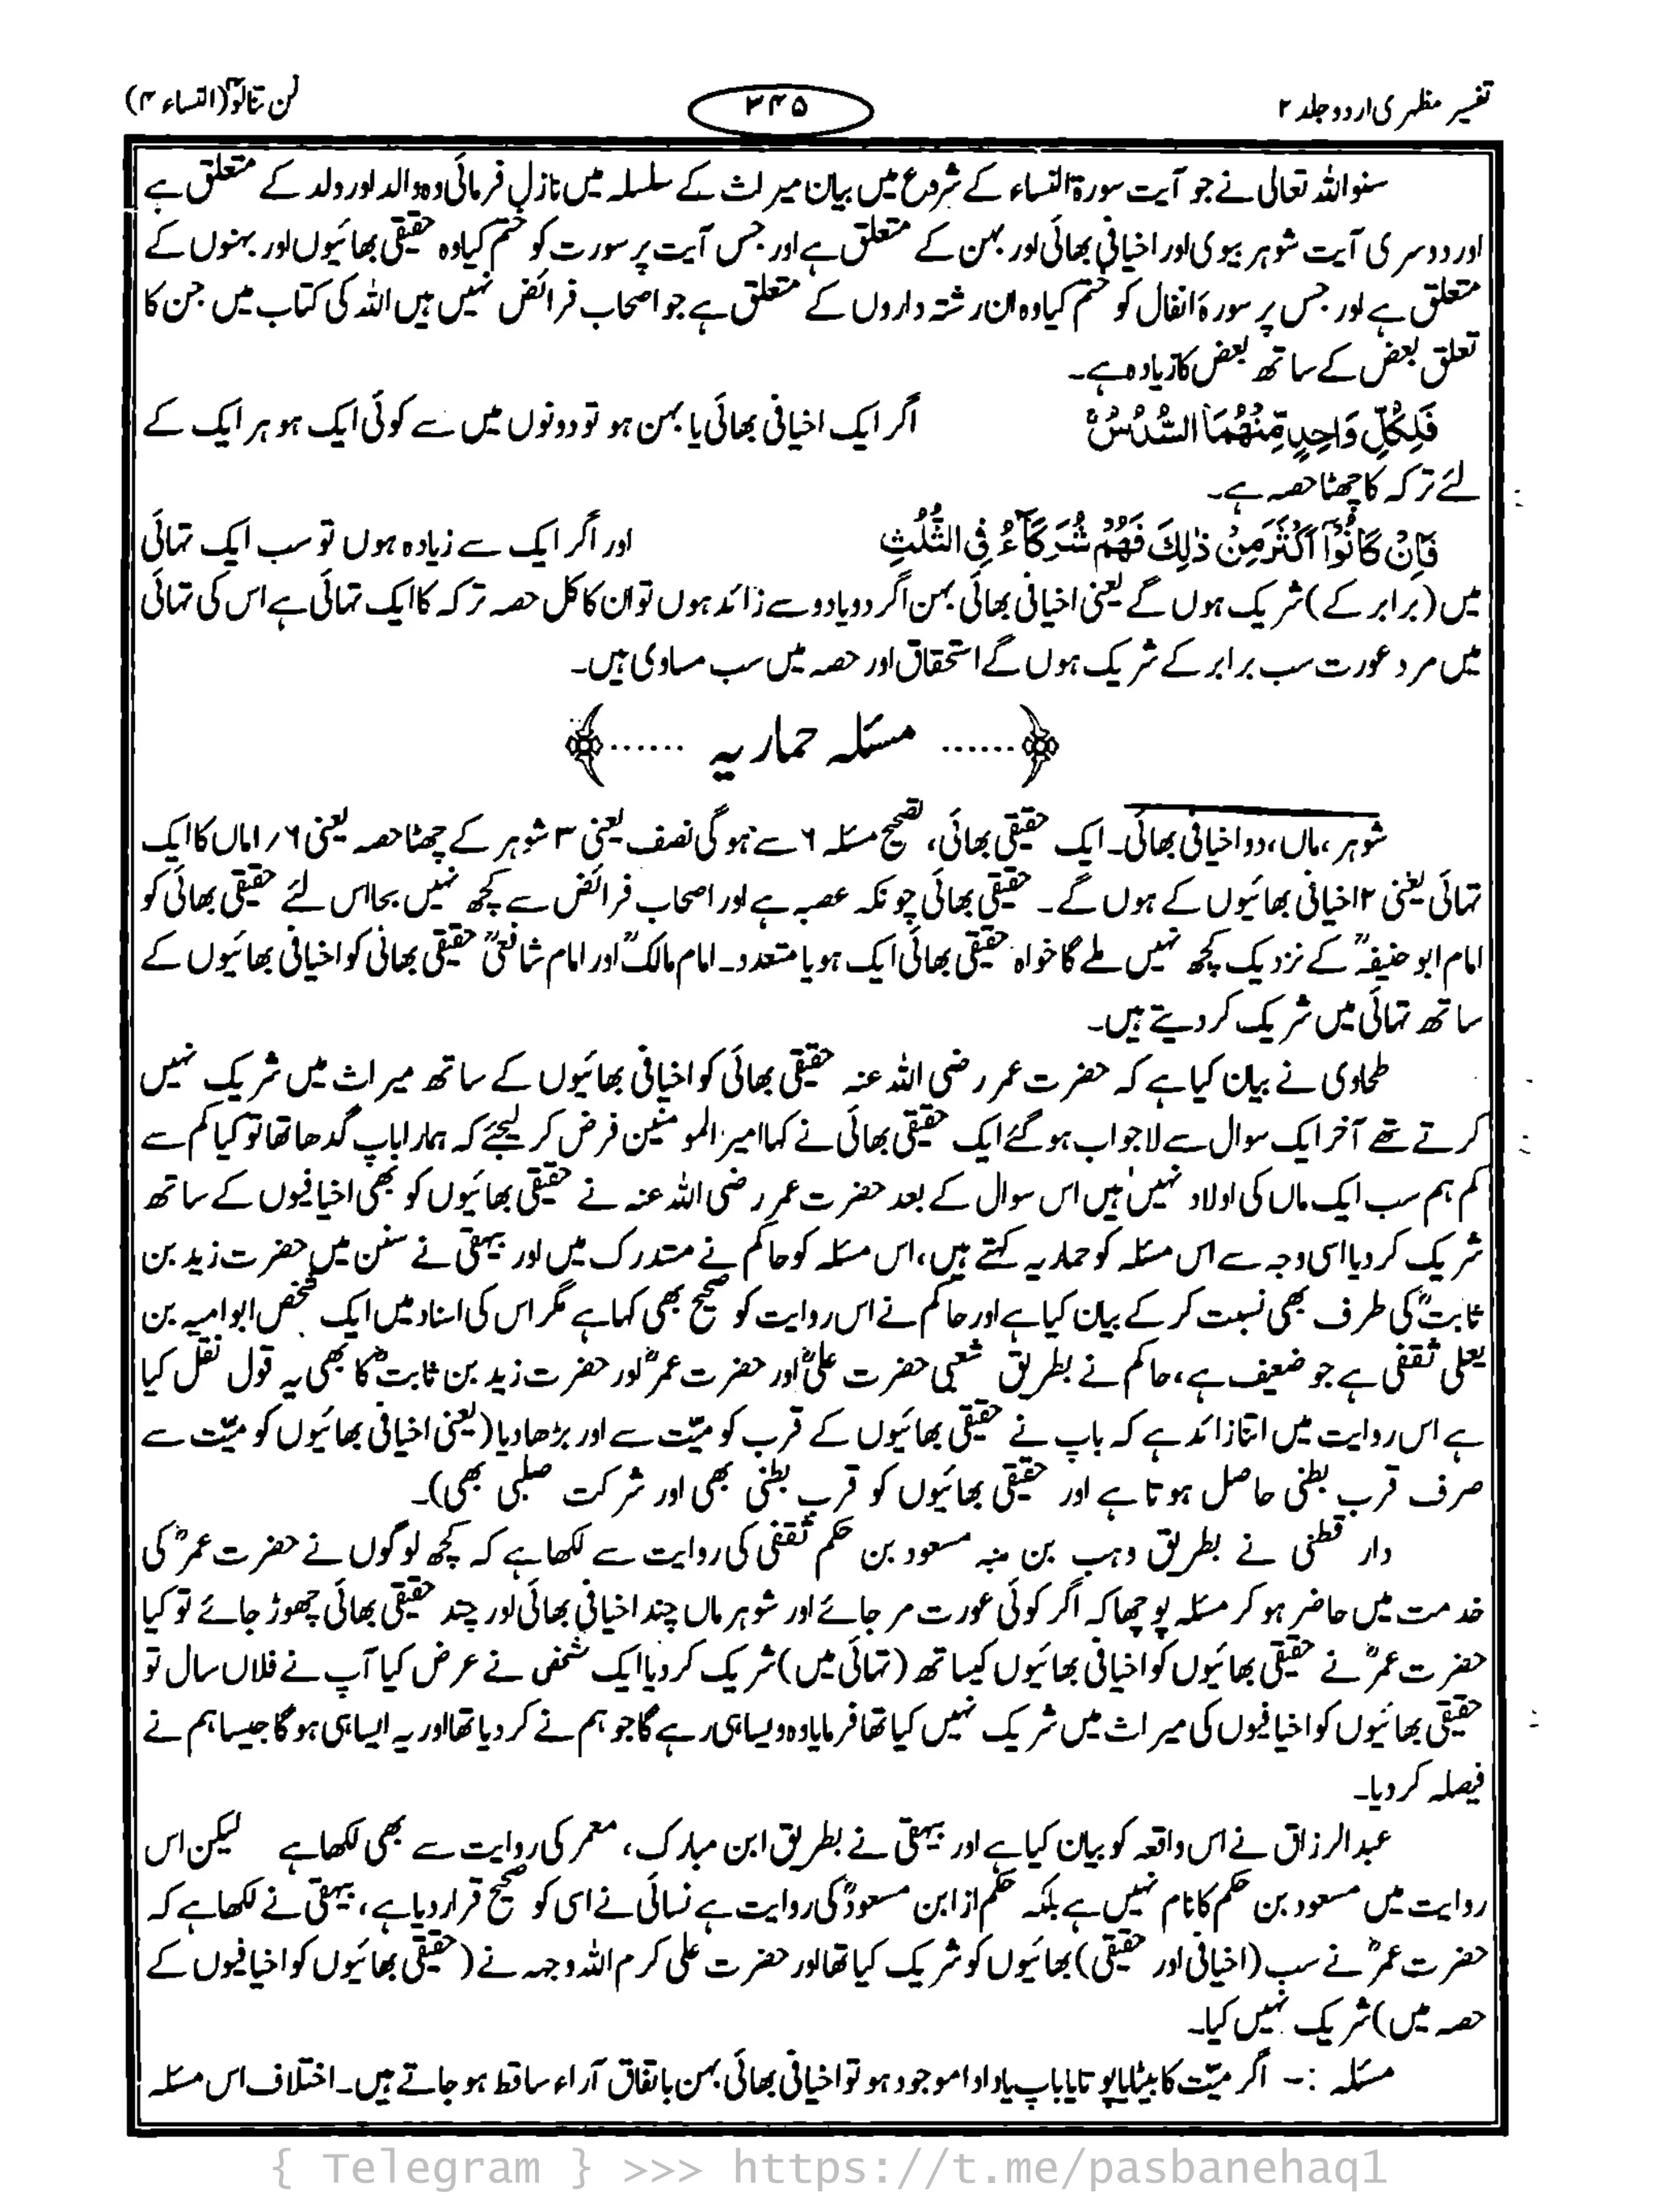 تفسیر مظہری اردو جلد ۲
۳۴۵
لن تنالوٓا (النساء ۴)
سنو اللہ تعالی نے جو آیت سورۃ النساء کے شروع میں بیان میراث کے سلسلہ میں نازل فرمائی وہ والد اور ولد کے متعلق ہے
اور دوسری آیت شوہر بیوی اور اخیافی بھائی اور بہن کے متعلق ہے اور جس آیت پر سورت کو ختم کیا وہ حقیقی بھائیوں اور بہنوں کے
متعلق ہے اور جس پر سورۂ انفال کو ختم کیا وہ ان رشتہ داروں کے متعلق ہے جو اصحاب فرائض نہیں ہیں اللہ کی کتاب میں جن کا
تعلق بعض کے ساتھ بعض کا زیادہ ہے۔
فَلِكُلِّ وَاحِدٍ مِّنْهُمَا السُّدُسُ ۚ اگر ایک اخیافی بھائی یا بہن ہو تو دونوں میں سے کوئی ایک ہو ہر ایک کے
لئے ترکہ کا چھٹا حصہ ہے۔
فَاِنْ كَانُوْٓا اَكْثَرَ مِنْ ذٰلِكَ فَهُمْ شُرَكَآءُ فِي الثُّلُثِ اور اگر ایک سے زیادہ ہوں تو سب ایک تہائی
میں (برابر کے) شریک ہوں گے یعنی اخیافی بھائی بہن اگر دو یا دو سے زائد ہوں تو ان کا کل حصہ ترکہ کا ایک تہائی ہے اس کی تہائی
میں مرد عورت سب برابر کے شریک ہوں گے استحقاق اور حصہ میں سب مساوی ہیں۔
﴿...... مسئلہ حماریہ ......﴾
شوہر، ماں، دو اخیافی بھائی۔ ایک حقیقی بھائی، تصحیح مسئلہ ۶ سے ہوگی نصف یعنی ۳ شوہر کے چھٹا حصہ یعنی ۱/۶ ماں کا ایک
تہائی یعنی ۲ اخیافی بھائیوں کے ہوں گے۔ حقیقی بھائی چونکہ عصبہ ہے اور اصحاب فرائض سے کچھ نہیں بچا اس لئے حقیقی بھائی کو
امام ابو حنیفہؒ کے نزدیک کچھ نہیں ملے گا خواہ حقیقی بھائی ایک ہو یا متعدد۔ امام مالکؒ اور امام شافعیؒ حقیقی بھائی کو اخیافی بھائیوں کے
ساتھ تہائی میں شریک کر دیتے ہیں۔
طحاوی نے بیان کیا ہے کہ حضرت عمر رضی اللہ عنہ حقیقی بھائی کو اخیافی بھائیوں کے ساتھ میراث میں شریک نہیں
کرتے تھے آخر ایک سوال سے لاجواب ہو گئے ایک حقیقی بھائی نے کہا امیر المومنین فرض کر لیجئے کہ ہمارا باپ گدھا تھا تو کیا کم سے
کم ہم سب ایک ماں کی اولاد نہیں ہیں اس سوال کے بعد حضرت عمر رضی اللہ عنہ نے حقیقی بھائیوں کو بھی اخیافیوں کے ساتھ
شریک کر دیا اسی وجہ سے اس مسئلہ کو حماریہ کہتے ہیں، اس مسئلہ کو حاکم نے متدرک میں اور بیہقی نے سنن میں حضرت زید بن
ثابتؓ کی طرف بھی نسبت کر کے بیان کیا ہے اور حاکم نے اس روایت کو صحیح بھی کہا ہے مگر اس کی اسناد میں ایک شخص ابو امیہ بن
یعلی ثقفی ہے جو ضعیف ہے، حاکم نے بطریق شعبی حضرت علیؓ اور حضرت عمرؓ اور حضرت زید بن ثابتؓ کا بھی یہ قول نقل کیا
ہے اس روایت میں اتنا زائد ہے کہ باپ نے حقیقی بھائیوں کے قرب کو میّت سے اور بڑھا دیا (یعنی اخیافی بھائیوں کو میّت سے
صرف قرب بطنی حاصل ہوتا ہے اور حقیقی بھائیوں کو قرب بطنی بھی اور شرکت صلبی بھی)۔
دار قطنی نے بطریق وہب بن منبہ مسعود بن حکم ثقفی کی روایت سے لکھا ہے کہ کچھ لوگوں نے حضرت عمرؓ کی
خدمت میں حاضر ہو کر مسئلہ پوچھا کہ اگر کوئی عورت مر جائے اور شوہر ماں چند اخیافی بھائی اور چند حقیقی بھائی چھوڑ جائے تو کیا
حضرت عمرؓ نے حقیقی بھائیوں کو اخیافی بھائیوں کیساتھ (تہائی میں) شریک کر دیا ایک شخص نے عرض کیا آپ نے فلاں سال تو
حقیقی بھائیوں کو اخیافیوں کی میراث میں شریک نہیں کیا تھا فرمایا وہ ویسا ہی رہے گا جو ہم نے کر دیا تھا اور یہ ایسا ہی ہوگا جیسا ہم نے
فیصلہ کر دیا۔
عبدالرزاق نے اس واقعہ کو بیان کیا ہے اور بیہقی نے بطریق ابن مبارک، معمر کی روایت سے بھی لکھا ہے لیکن اس
روایت میں مسعود بن حکم کا نام نہیں ہے بلکہ حکم از ابن مسعودؓ کی روایت ہے نسائی نے اسی کو صحیح قرار دیا ہے، بیہقی نے لکھا ہے کہ
حضرت عمرؓ نے سب (اخیافی اور حقیقی) بھائیوں کو شریک کیا تھا اور حضرت علی کرم اللہ وجہہ نے (حقیقی بھائیوں کو اخیافیوں کے
حصہ میں) شریک نہیں کیا۔
مسئلہ :- اگر میّت کا بیٹا یا پوتا یا باپ یا دادا موجود ہو تو اخیافی بھائی بہن باتفاق آراء ساقط ہو جاتے ہیں۔ اختلاف اس مسئلہ
{ Telegram } >>> https://t.me/pasbanehaq1